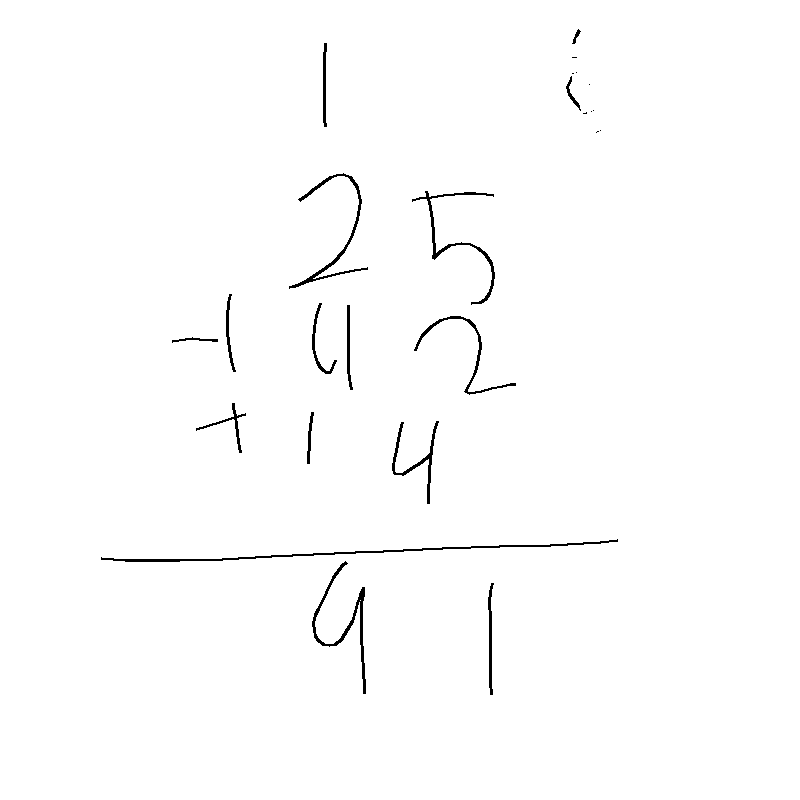 1
25
+ 42
+ 14
91